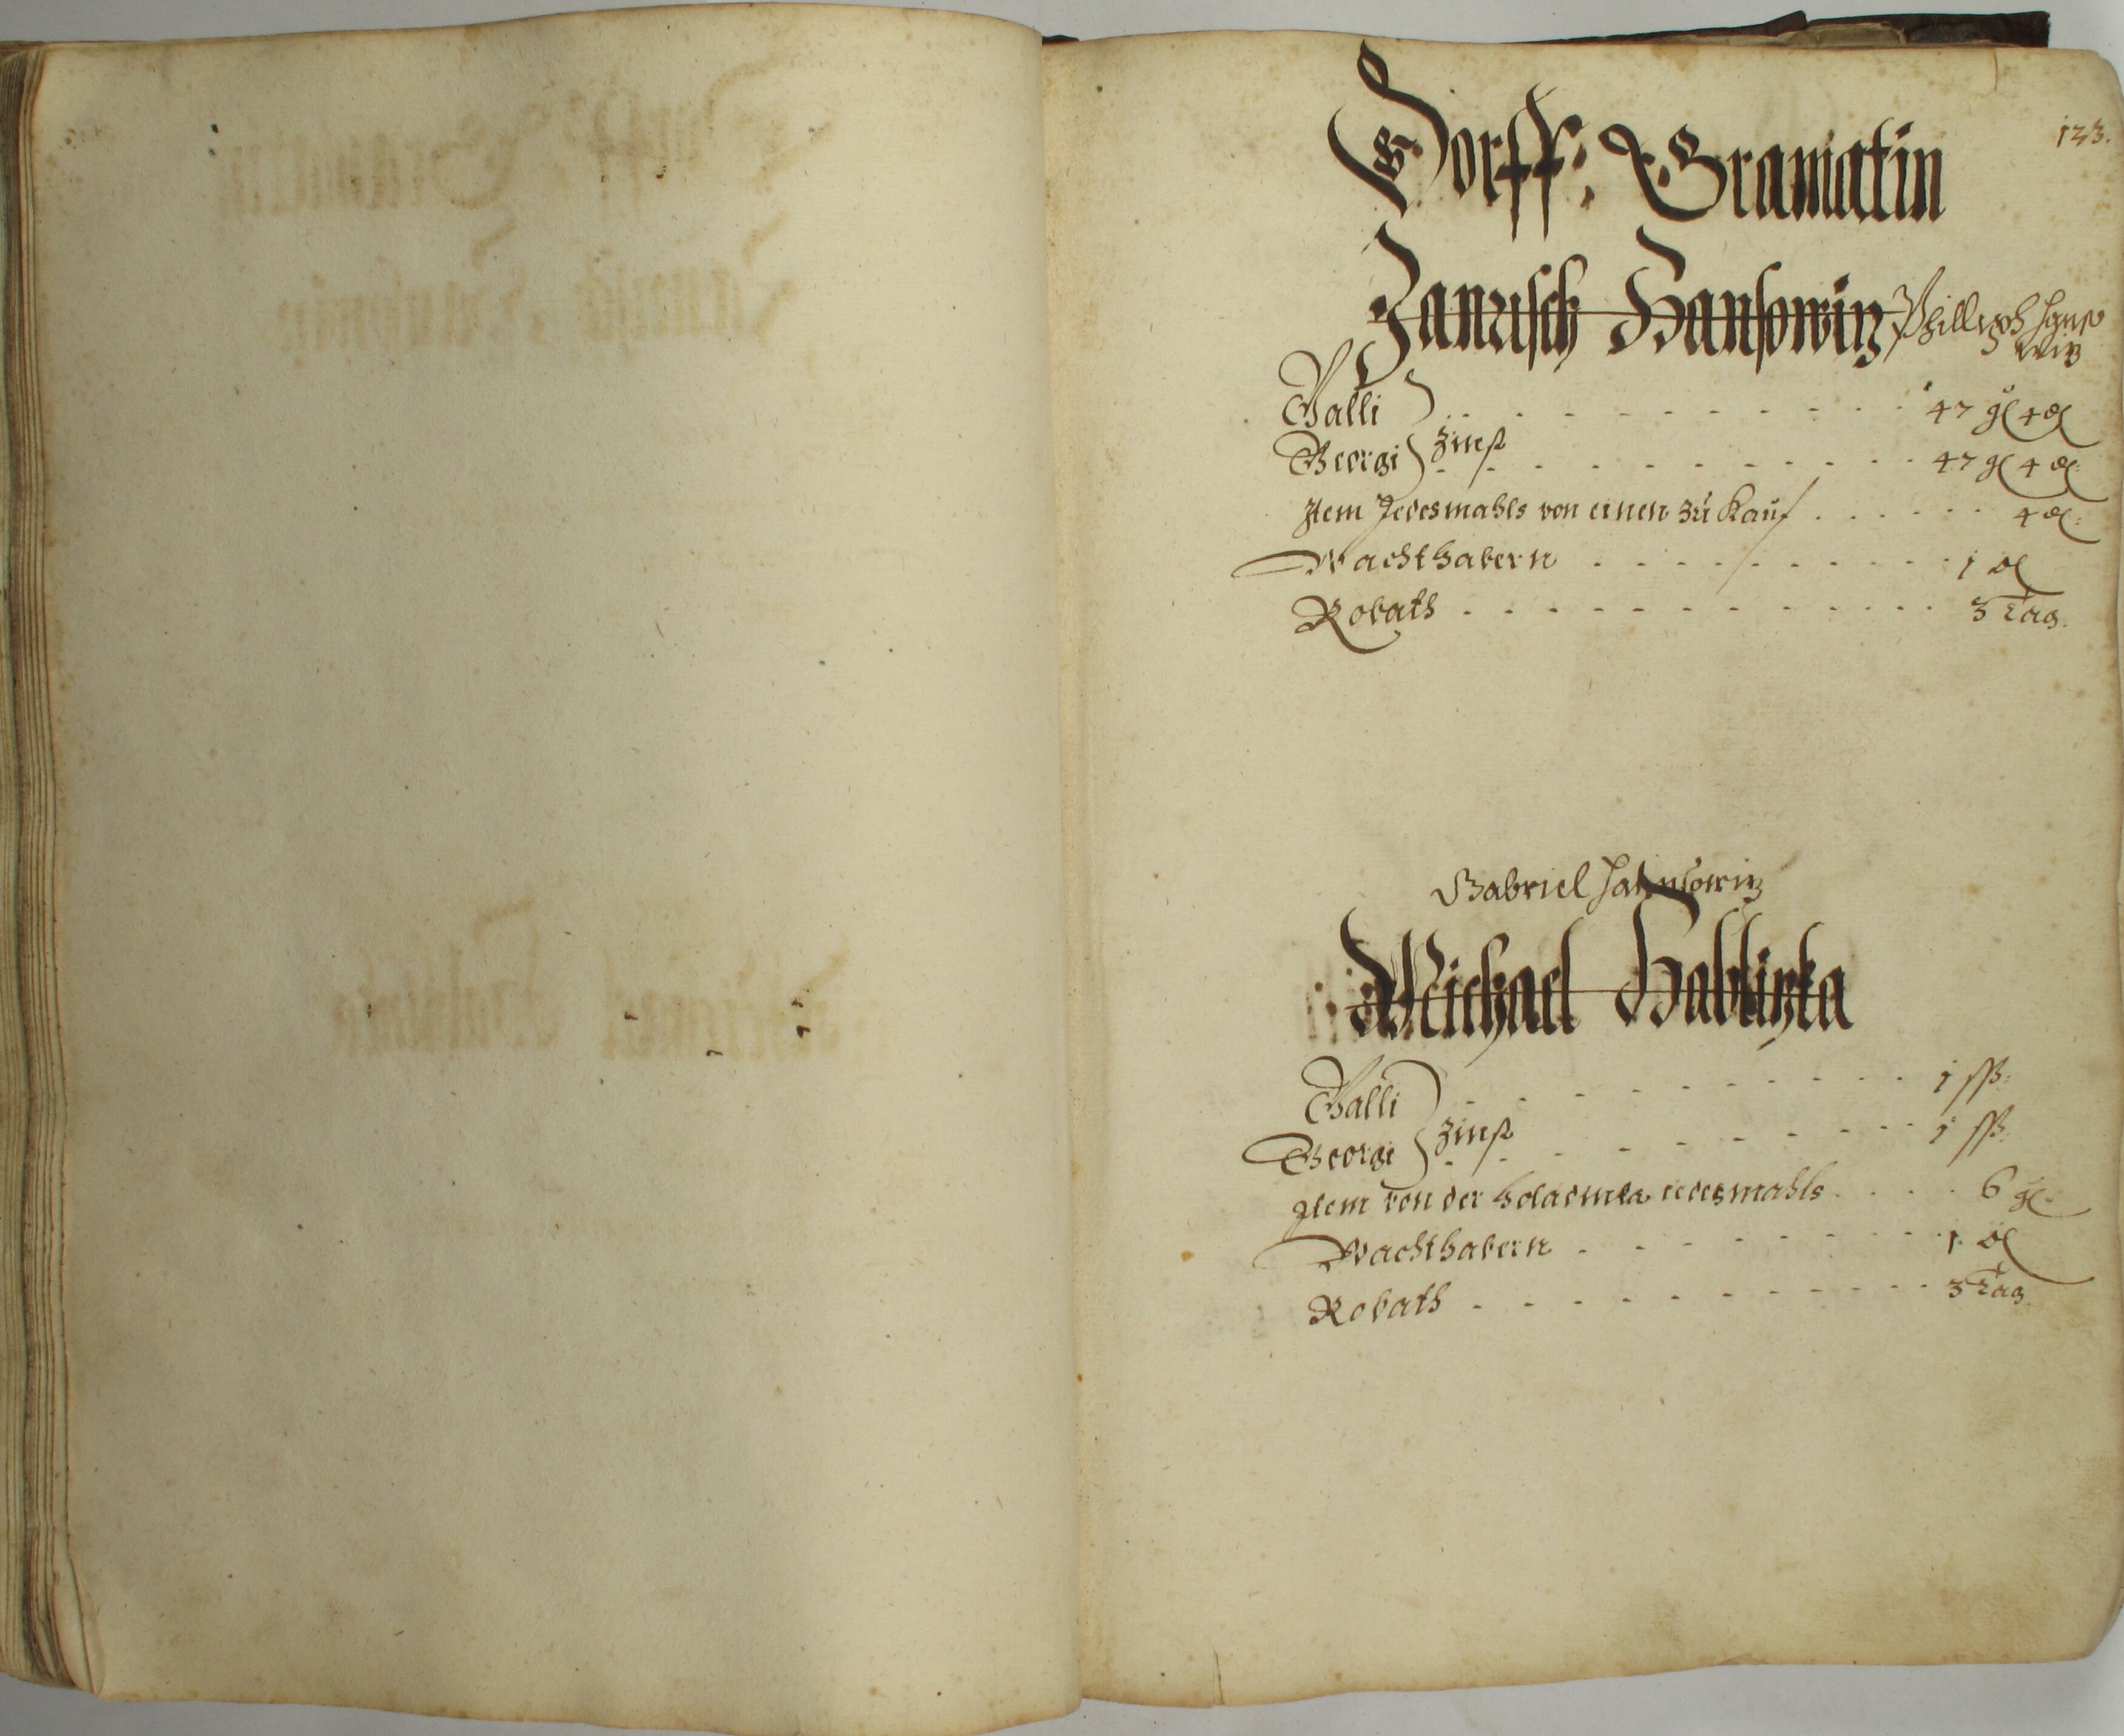 123.
Dorff: Gramatin
Janusch Hansowitz Phillipp Hanso
witz
Galli . . . . . . . . . . 47 gl 4 ₰
Zinß
Georgi . . . . . . . . . . 47 gl 4 ₰
Item Jedesmahls von einen zu Kauf . . . . . . 4 ₰:
Wachthabern . . . . . . . . . 1
Robath . . . . . . . . . . . . 3 Tag.
Gabriel Hahnsowitz
Michael Hablizka
Galli . . . . . . . . . 1 ßß:
Zinß
Georgi . . . . . . . . . 1 ßß:
Item von der jedesmahls . . . . 6 gl.
Wachthabern . . . . . . . . . 1
Robath . . . . . . . . . . . 3 Tag